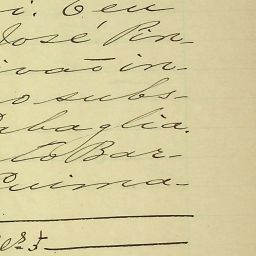 i. E eu
José Pin-
ivão in-
o subs-
abaglia.
to Bar-
Guima-